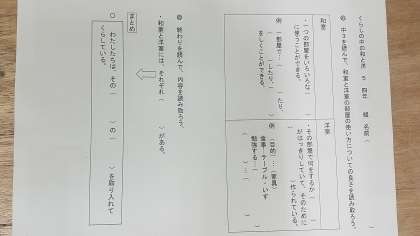 くらしの中の和と洋 5 四年 組 名前( )
◎ 中２を読んで、和室と洋室の部屋の使い方についての良さを読み取ろう。
和室
・一つの部屋をいろいろな( )
に使うことができる。
例
一部屋で…( )たり、
( )したり、( )
をしくことができる。
洋室
・その部屋で何をするか( )
がはっきりしていて、そのために
( )作られている。
例 (目的)…(家具)
食事…テーブル・いす
勉強する…( )
( )…( )
◎ 終わりを読んで、内容を読み取ろう。
・和室と洋室には、それぞれ( )がある。
まとめ
○ わたしたちは その( )の( )を取り入れて
くらしている。